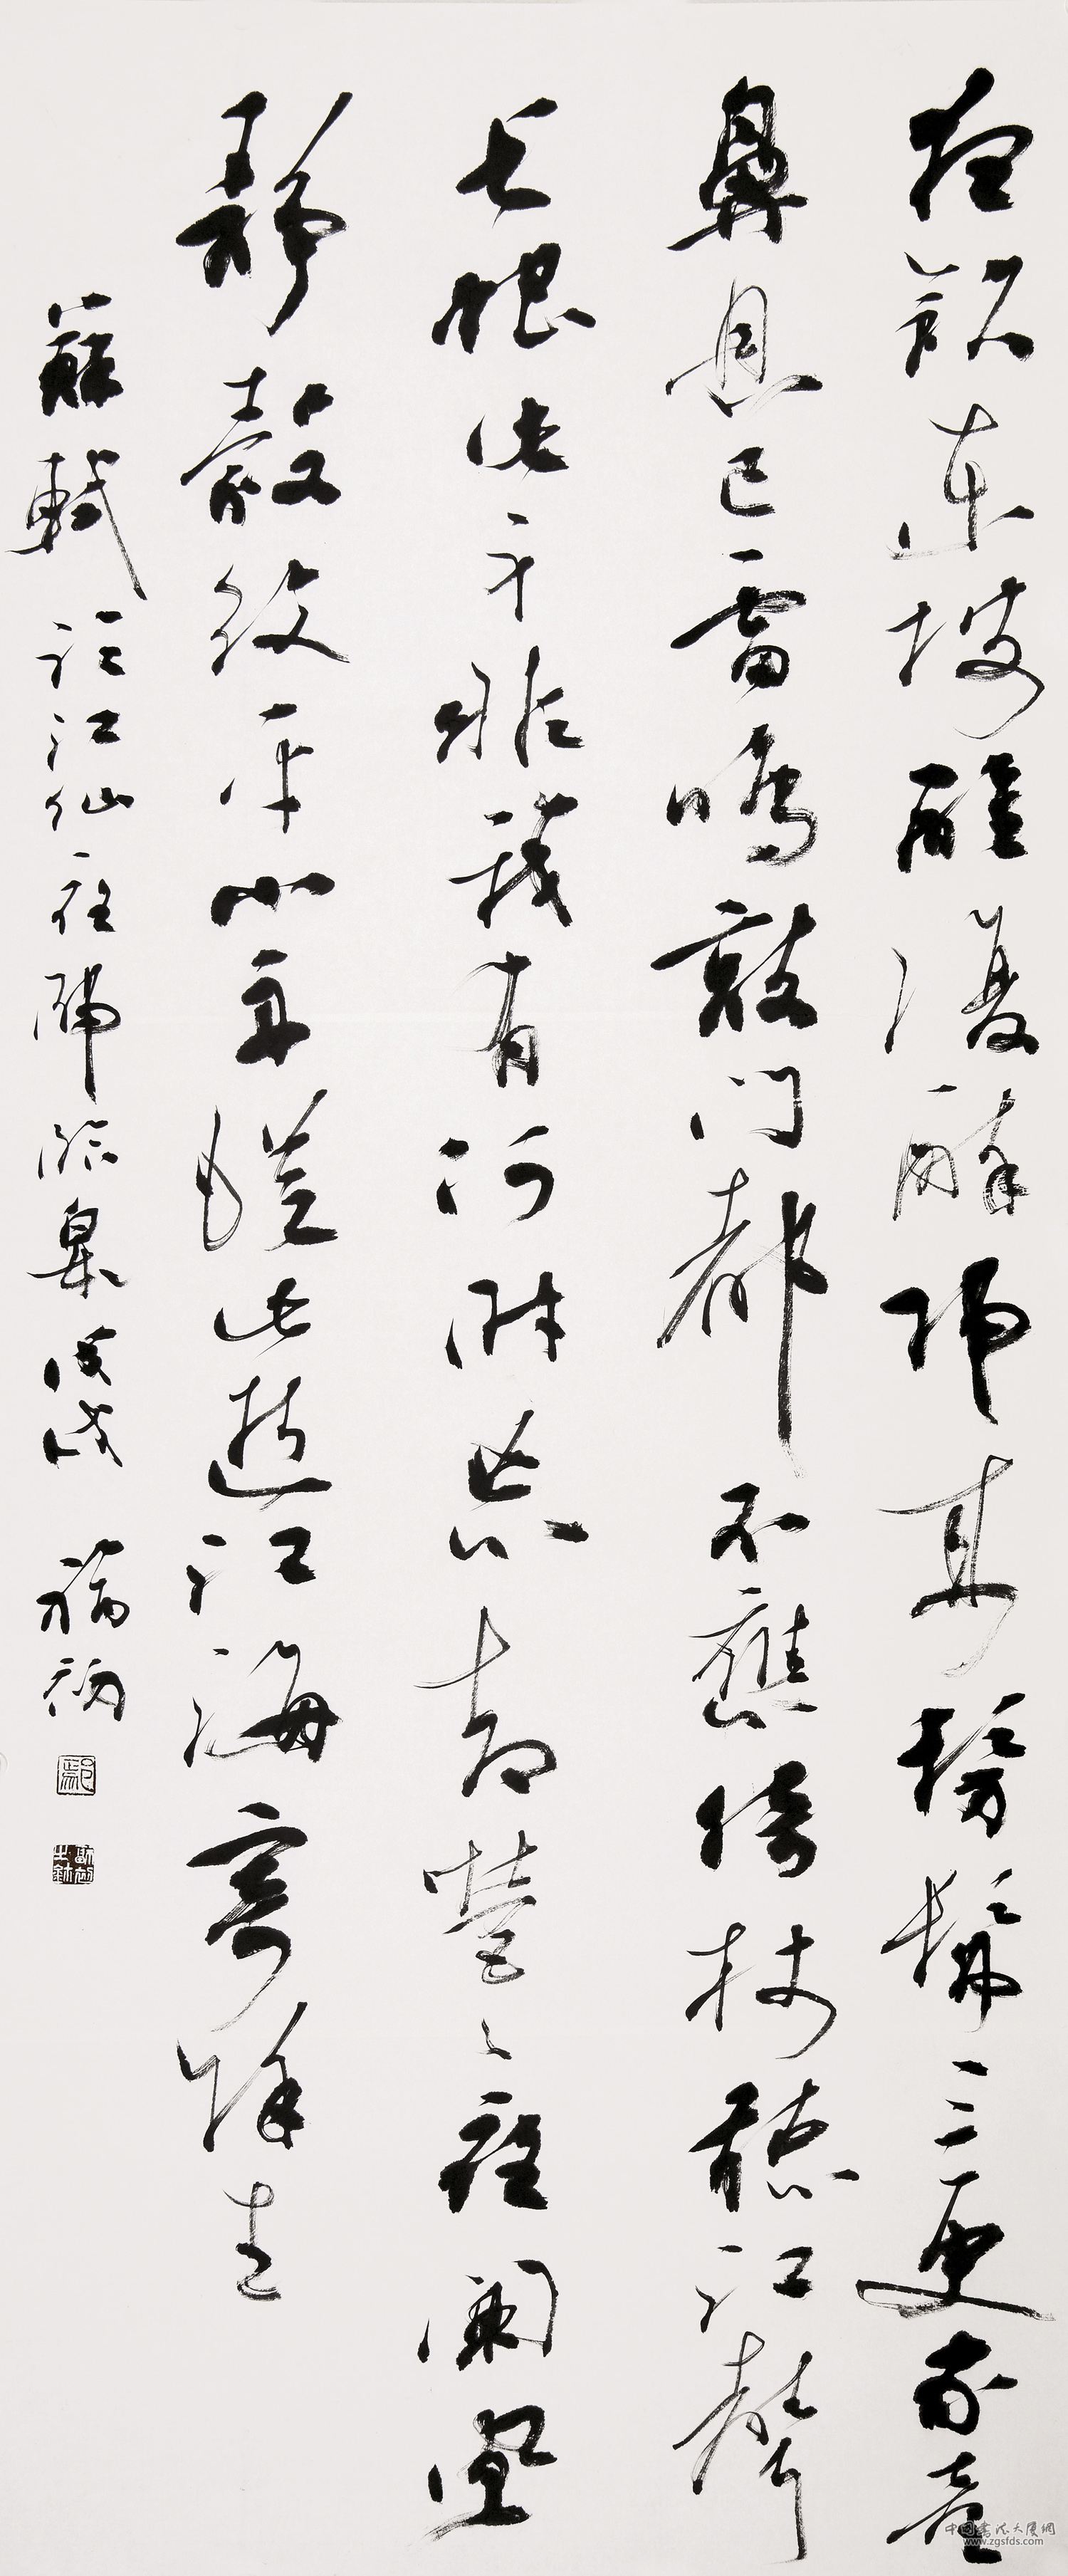 夜飲東坡醒復醉歸來髣髴三更家童
鼻息已雷鳴敲門都不應倚杖聽江聲
長恨此身非我有何時忘却營々夜闌風
靜縠紋平小舟從此逝江海寄餘生
蘇軾臨江仙夜歸臨皋戊戌
中国書法大厦網
www.zgsfds.com